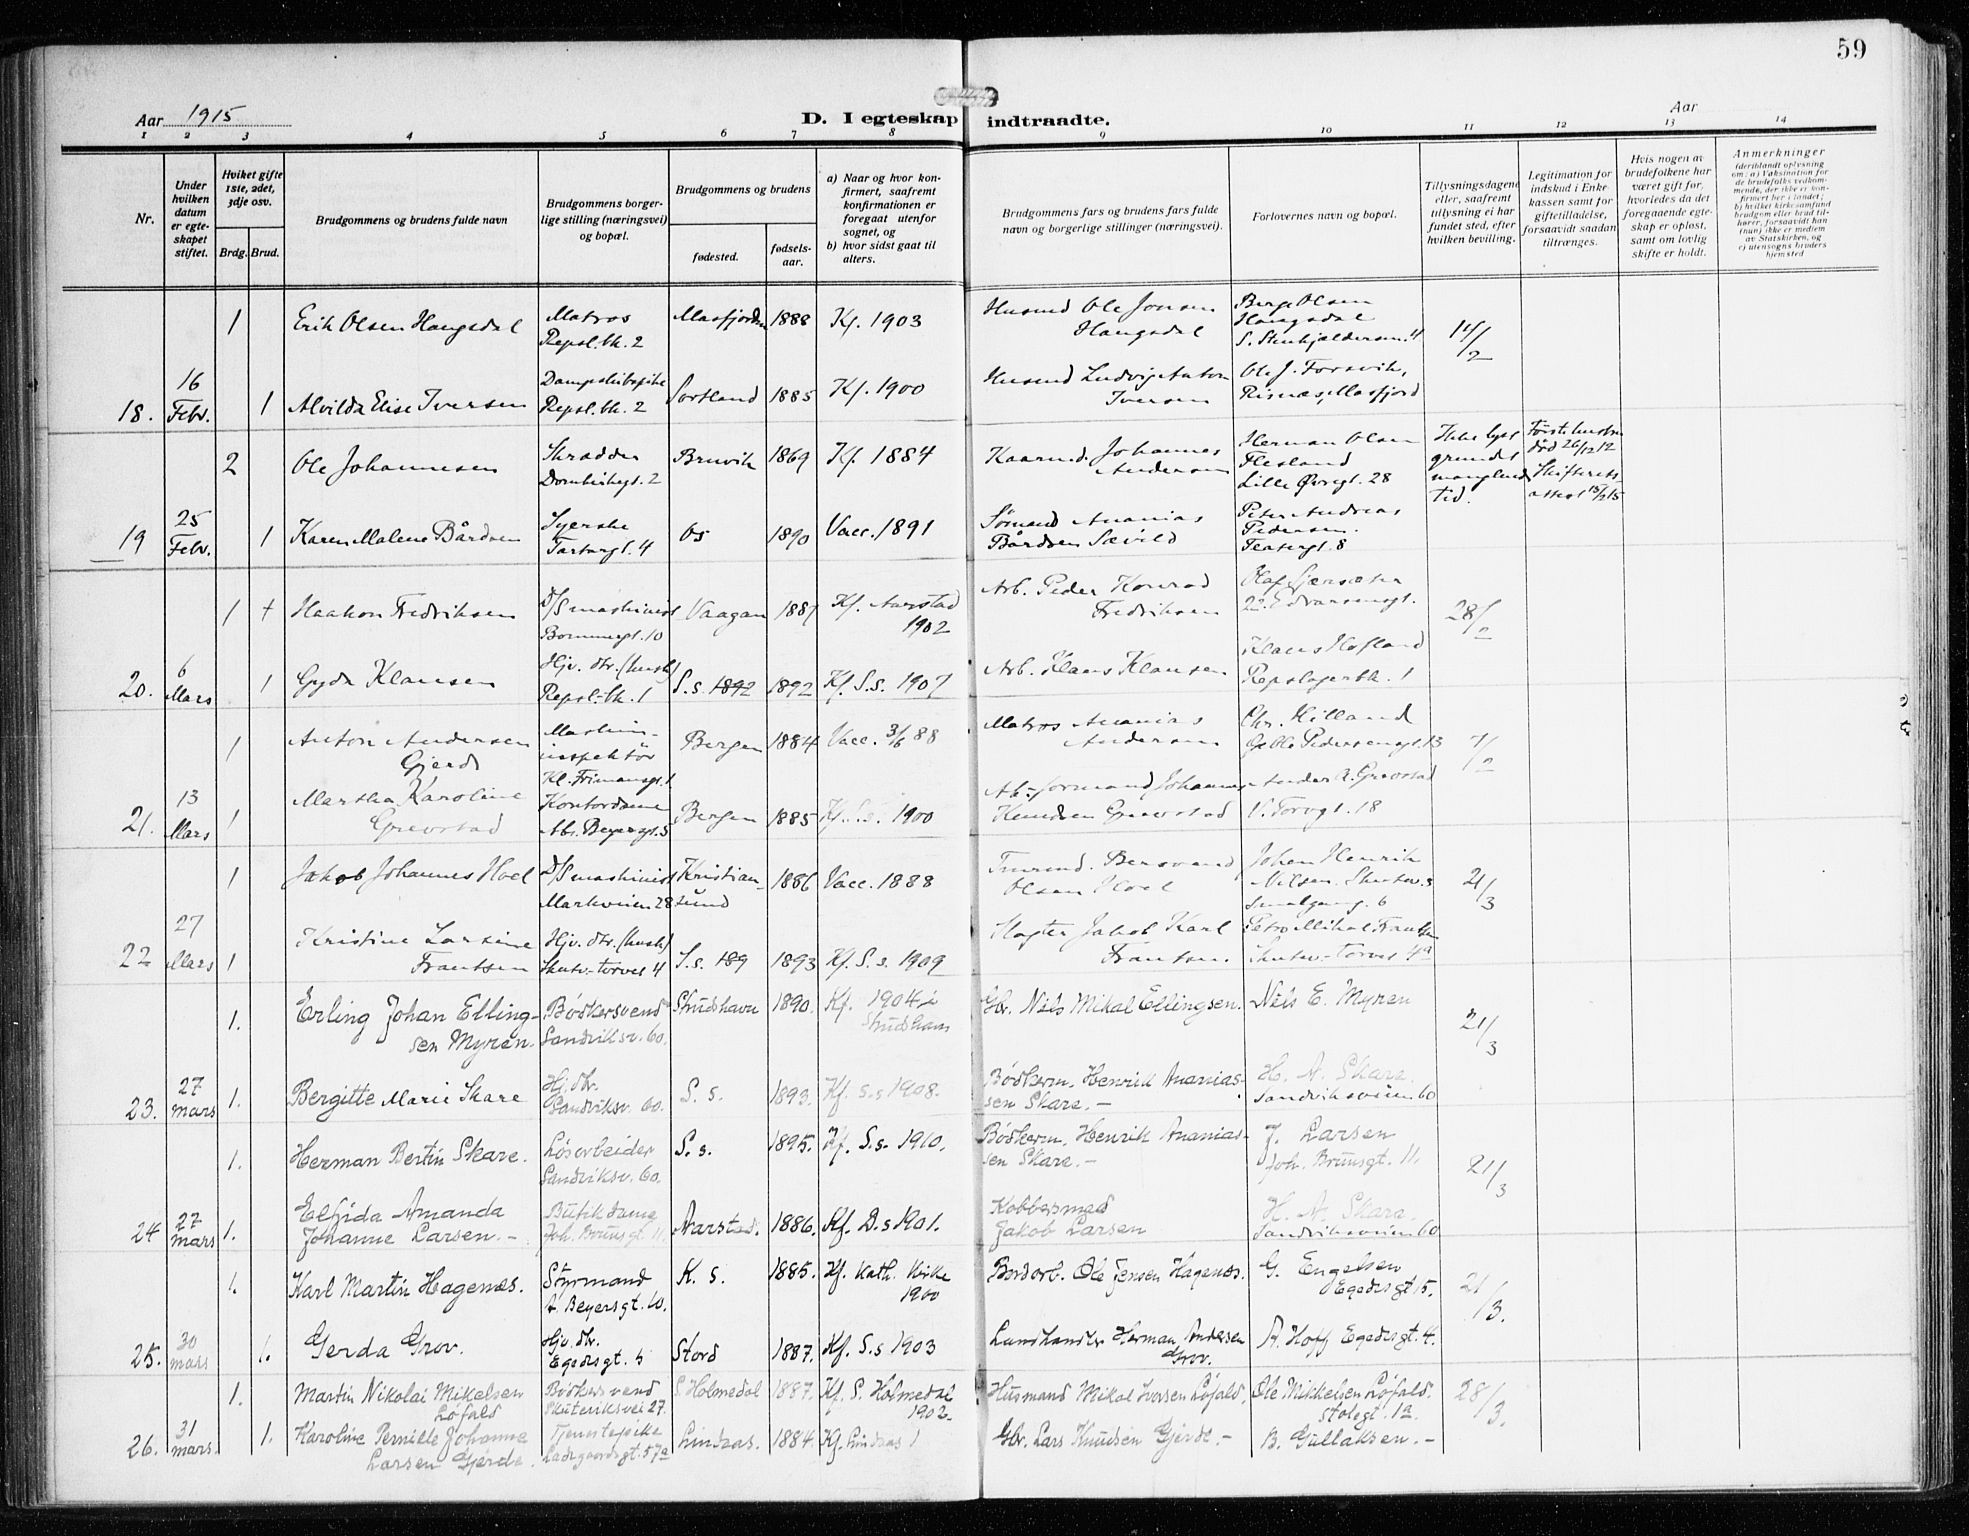 59
Aar 1915
D. I egteskap indtraadte.
Aar
1 2 3 4 5 6 7 8 9 10 11 12 13 14
Nr.
Under hvilken datum er egteskapet stiftet.
Hviket gifte 1ste, 2det, 3dje osv.
Brdg. Brud.
Brudgommens og brudens fulde navn
Brudgommens borgerlige stilling (næringsvei) og bopæl.
Brudgommens og brudens
fødested.
fødselsaar.
a) Naar og hvor konfirmert, saafremt konfirmationen er foregaat utenfor sognet, og
b) hvor sidst gaat til alters.
Brudgommens fars og brudens fars fulde navn og borgerlige stillinger (næringsvei).
Forlovernes navn og bopæl.
Tillysningsdagene eller, saafremt tillysning ei har fundet sted, efter hvilken bevilling.
Legitimation for indskud i Enkekassen samt for giftetilladelse, forsaavidt saadan tiltrænges.
Hvis nogen av brudefolkene har været gift før, hvorledes da det foregaaende egteskap er opløst, samt om lovlig skifte er holdt.
Anmerkninger
1 Erik Olsen Haugsdal Matros Repsl.bk. 2 Masfjorden 1888 Kf. 1903 Husmd Ole Jonsen Haugsdal Berge Olsen Haugsdal 14/2
18. 16 Febr. 1 Alvilda Elise Iversen Repsl.bk. 2 Sortland 1885 Kf. 1900 Husmd Ludvig Anton Iversen Ole J. Forsvik, Risnæs, Masfjord
2 Ole Johannesen Skrædder Bruvik 1869 Kf. 1884 Johannes Andersen Herman Olsen Flesland Lille Øvregt. 28 Ikke lyst grundet manglende tid. Første hustru død 26/12 12 Skifteretsattest 15/2 15
19 25 Febr. 1 Karen Malene Bårdsen Syerske 4 Os 1890 Vacc. 1891 Ananias Bårdsen Sævild Peter Andreas Pedersen. Teatergt. 8
1 + Haakon Fredriksen D/S maskinist 10 Vaagan 1887 Kf. Aarstad 1902 Arb. Peder Konrad Fredriksen 28/2
20. 6 Mars 1 Gyda Klausen Hjv. dtr. (husb) Repsl.bk. 1 S.s. 1892 1892 Kf. S.s. 1907 Arb. Klaus Klausen Klaus Hofland Repslagerbk. 1
1 Anton Andersen Gjerde Maskininspektør Kl. Frimansgt. 1 Bergen 1884 Vacc. 3/6 88 Matros Ananias Andersen Chr. Hilland Gable Pedersensgt. 13 7/2
21. 13 Mars 1 Martha Karoline Grevstad Kontordame Abr. Beyersgt. 5 Bergen 1885 Kf. S.s. 1900 Johannes Knudsen Grevstad Anders A. Grevstad V. Torvgt. 18
1 Jakob Johannes Hoel D/S maskinist Markveien 28 Kristiansund 1886 Vacc. 1888 Olsen Hoel Johan Henrik Nilsen. 6 21/3
22 27 Mars 1 Kristine Larsine Frantsen Hjv. dtr. (husb) Skutev-torvet 4 S.s. 189 1893 Kf. S.s. 1909 Slagter Jakob Karl Frantsen. Petro Mikal Frantsen Skutev-torvet 4a
1. Erling Johan Ellingsen Myren. Bødkersvend Sandviksv. 60. Skudshavn 1890. Kf. 1904 i Skudshavn Gbr. Nils Mikal Ellingsen. Nils E. Myren 21/3
23. 27 mars 1. Bergitte Marie Skare Hj. dtr. Sandviksv. 60. S.s. 1893. Kf. S.s 1908. Bødkerm. Henrik Ananiassen Skare.- H. A. Skare. Sandviksveien 60
1. Herman Bertin Skare. Løsarbeider Sandviksv. 60. S.s. 1895. Kf. S.s. 1910. Bødkerm. Henrik Ananiassen Skare.- J. Larsen Joh. Bruunsgt. 11. 21/3
24 27 mars 1. Elfrida Amanda Johanne Larsen.- Butikdame Joh. Bruunsgt. 11. Aarstad. 1886. Kf. D.s 1901. Kobbersmed Jakob Larsen H. A. Skare. Sandviksveien 60
1. Karl Martin Hagenæs. Styrmand A. Beyersgt. 10. K.s. 1885. Kf. Kath. Kirke 1900 Bordarb. Ole Jensen Hagenæs. G. Engelsen Egedesgt 15. 21/3.
25. 30 mars 1. Gerda Grov. Hjv. dtr. Egedesgt. 4 Stord 1887. Kf. S.s 1903 Landhandler Herman Andersen Grov. A. Hoff Egedesgt. 4.
1. Martin Nikolai Mikelsen Løfald Bødkersvend Skuteviksvei 27. S. Holmedal 1887. Kf. S. Holmedal 1902. Husmand Mikal Iversen Løfald. Ole Mikkelsen Løfald. Stølegt. 1a 28/3.
26. 31 mars. 1. Karoline Pernille Johanne Larsen Gjerde. Tjenestepike Ladegaardsgt. 57a Lindaas. 1884. Kf. Lindaas Gbr. Lars Knudsen Gjerde.- B. Gullaksen.-